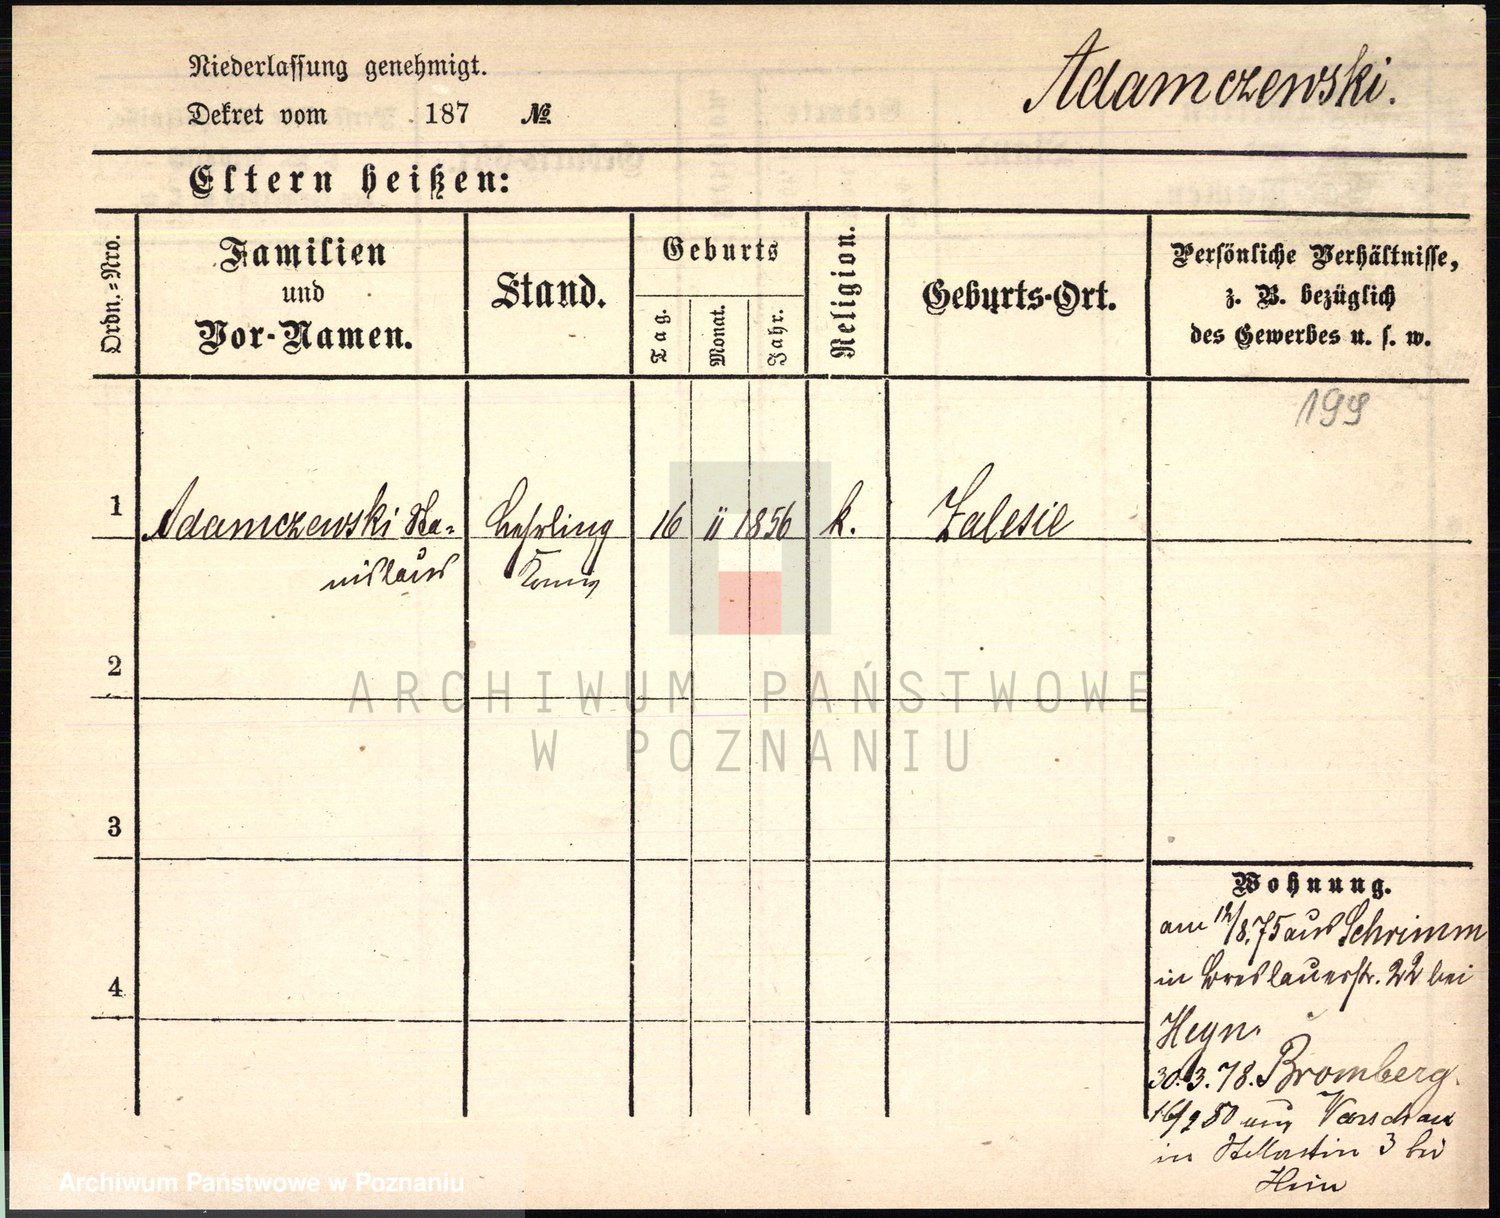 Niederlassung genehmigt.
Dekret vom 187 №
Adamczewski.
Eltern heißen:
Ordn.=Nro.
Familien
und
Vor-Namen.
Stand.
Geburts
Tag.
Monat.
Jahr.
Religion.
Geburts-Ort.
Persönliche Verhältnisse,
z. B. bezüglich
des Gewerbes u. s. w.
199
1 Adamczewski Sta= Lehrling 16 ii 1856 k. Zalesie
nislaus
2
ARCHIWUM PAŃSTWOWE
W POZNANIU
3
4
Wohnung.
am 12/8.75 aus Schrimm
in Breslauerstr. 22 bei
Heyn.
30.3.78. Bromberg.
16/2 80 aus Warschau
in St Martin 3 bei
Archiwum Państwowe w Poznaniu